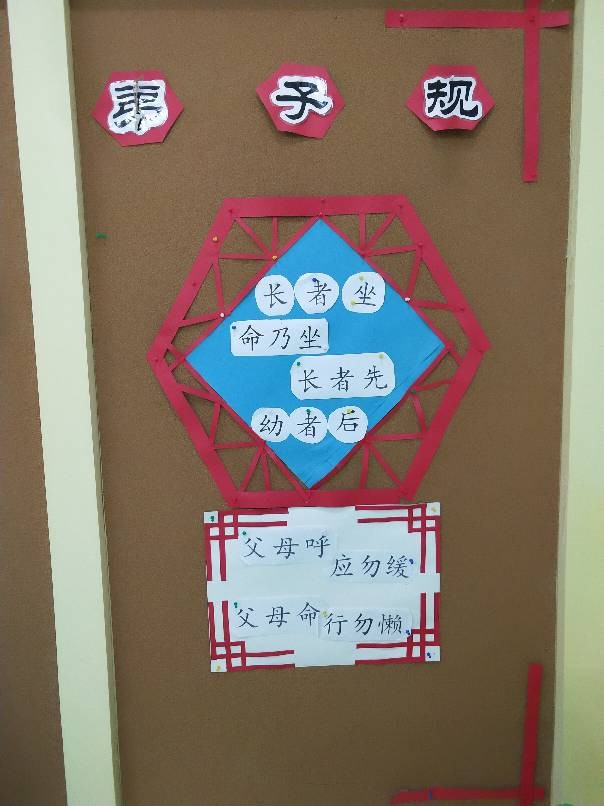 弟子规
长者坐
命乃坐
长者先
幼者后
父母呼
应勿缓
父母命
行勿懒